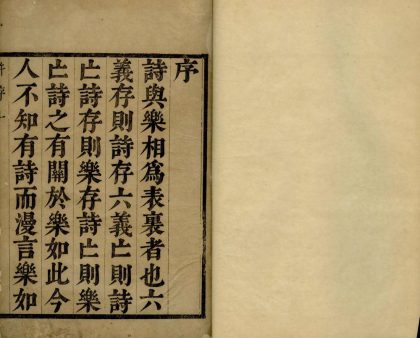 序
詩與樂相爲表裏者也六
義存則詩存六義亡則詩
亡詩存則樂存詩亡則樂
亡詩之有關於樂如此今
人不知有詩而漫言樂如